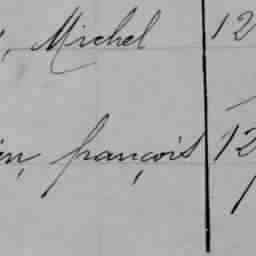 , Michel 12
in, françois 12